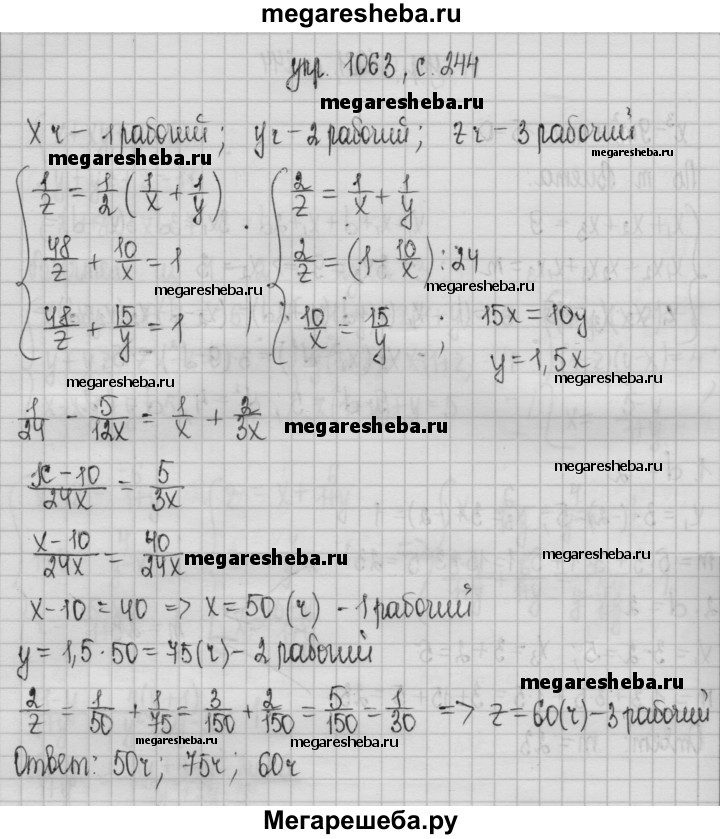 megaresheba.ru
упр. 1063, с. 244
megaresheba.ru
xч – 1 рабочий; yч – 2 рабочий; zч – 3 рабочий
megaresheba.ru
megaresheba.ru
1/z = 1/2 (1/x + 1/y)
48/z + 10/x = 1
megaresheba.ru
48/z + 15/y = 1
2/z = 1/x + 1/y
2/z = (1 – 10/x) : 24
megaresheba.ru
10/x = 15/y ; 15x = 10y
y = 1,5x
megaresheba.ru
megaresheba.ru
1/24 – 5/12x = 1/x + 2/3x
megaresheba.ru
x – 10/24x = 5/3x
megaresheba.ru
x – 10/24x = 40/24x
megaresheba.ru
megaresheba.ru
x – 10 = 40 => x = 50 (ч) – 1 рабочий
y = 1,5 · 50 = 75(ч) – 2 рабочий
megaresheba.ru
2/z = 1/50 + 1/75 = 3/150 + 2/150 = 5/150 = 1/30 => z = 60(ч) – 3 рабочий
megaresheba.ru
megaresheba.ru
megaresheba.ru
Ответ: 50ч; 75ч; 60ч
Мегарешеба.ру